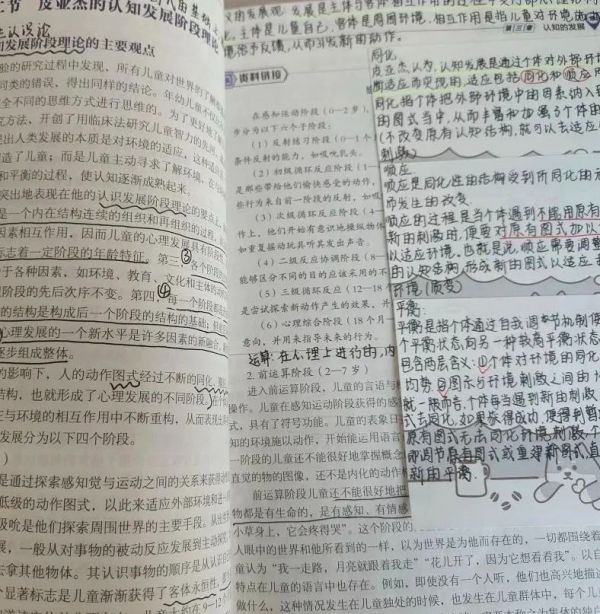 二节 皮亚杰的认知发展阶段理论
知发展阶段理论的主要观点
验的研究过程中发现，所有儿童对世界的了解
同类的错误，得出同样的结论。年幼儿童
全不同的思维方式进行思维的。为了更好地了解
究方法，开创了用临床法研究儿童智力的先河。
提出人类发展的本质是对环境的适应，这种适应
造了儿童；而是儿童主动寻求了解环境，在与
和平衡的过程，使认知逐渐成熟起来。
突出地表现在他的认识发展阶段理论的要点
是一个内在结构连续的组织和再组织的过程，
因素相互作用，因而儿童的心理发展具有阶段性
标志着一定阶段的年龄特征。第三③各个阶段的
于各种因素，如环境、教育、文化和主体的动机
阶段的先后次序不变。第四④每一个阶段都是
的结构是构成后一个阶段的结构的基础，但
心理发展的一个新水平是许多因素的新融合，
逐步组成整体。
的影响下，人的动作图式经过不断的同化、
结构，也就形成了心理发展的不同阶段。
在与环境的相互作用中不断重构，从而表现出
发展分为以下四个阶段。
是通过探索感知觉与运动之间的关系来获得动作
低级的动作图式，以此来适应外部环境和进一步
吸吮是他们探索周围世界的主要手段。从
展，一般从对事物的被动反应发展到主动探究
去拿其他物体。其认识事物的顺序是从认识自
个显著标志是儿童渐渐获得了客体永恒性，
主体是儿童自己，客体是周围环境，相互作用是指儿童对环境
境给予反馈，从而引发新的动作。
第三章 认知的发展
资料链接
在感知运动阶段（0～2岁），
步分为以下六个子阶段：
（1）反射练习阶段（0～1个
条件反射的能力，如吸吮乳头。
（2）初级循环反应阶段（1～
是那些带给他们愉快感觉的动作，
些行为来自前一阶段的反射，如吸
（3）次级循环反应阶段（4～
作上，他们开始有意识地操纵物体
如重复摇动玩具听其发出声音。
（4）二级反应协调阶段（8～
能够区分不同的目的应该采用的不
（5）三级循环反应（12～18
是尝试探索新动作产生的效果，并
（6）心理综合阶段（18个月～
意向，并用来指导未来的行为。
运算：在心理上进行的，内
2. 前运算阶段（2～7岁）
进入前运算阶段，儿童的言语与
操作。儿童在感知运动阶段获得的感
式，具有了符号功能。儿童的表象日
知的环境施以动作，开始能运用语言
一阶段的儿童还不能很好地掌握概念
直觉的物的图像，还不是内化的动作
前运算阶段儿童还不能很好地把
物都是有生命的，是有感知、有情感
“小草身上，它会疼得哭”。这个阶段的
人眼中的世界和他所看到的一样，以为世界是为他而存在的，一切都围绕着
童认为“我一走路，月亮就跟着我走”“花儿开了，因为它想看看我”。以自
特点在儿童的语言中也存在。例如，即使没有一个人听，他们也高兴地描述
做什么，这种情况发生在儿童独处的时候，也发生在儿童群体中，每个儿
同化
皮亚杰认为，认知发展是通过个体对外部环
断适应而实现的。适应包括同化和顺应
同化指个体把外部环境中的因素纳入
的图式当中，从而丰富和加强了个体的
（不改变原有认知结构，就可以去适应
刺激）
顺应
顺应是同化性的结构受到所同化的
而发生的改变。
顺应的过程是当个体遇到不能用原有
新的刺激时，便要对原有图式加以
以适应环境。也就是说，顺应需要调整
的认知结构，形成新的图式以适应
环境（质变）
平衡：
平衡是指个体通过自我调节机制使
个平衡状态向另一种较高平衡状态
包含两层含义：①个体对环境的同化
均势 ②图示与环境刺激之间的
就一般而言，个体每当遇到新的刺激，
式去同化，如果获得成功，便得到暂
原有图式无法同化环境刺激，个
即调节原有图式或重建新图式，直
新的平衡。